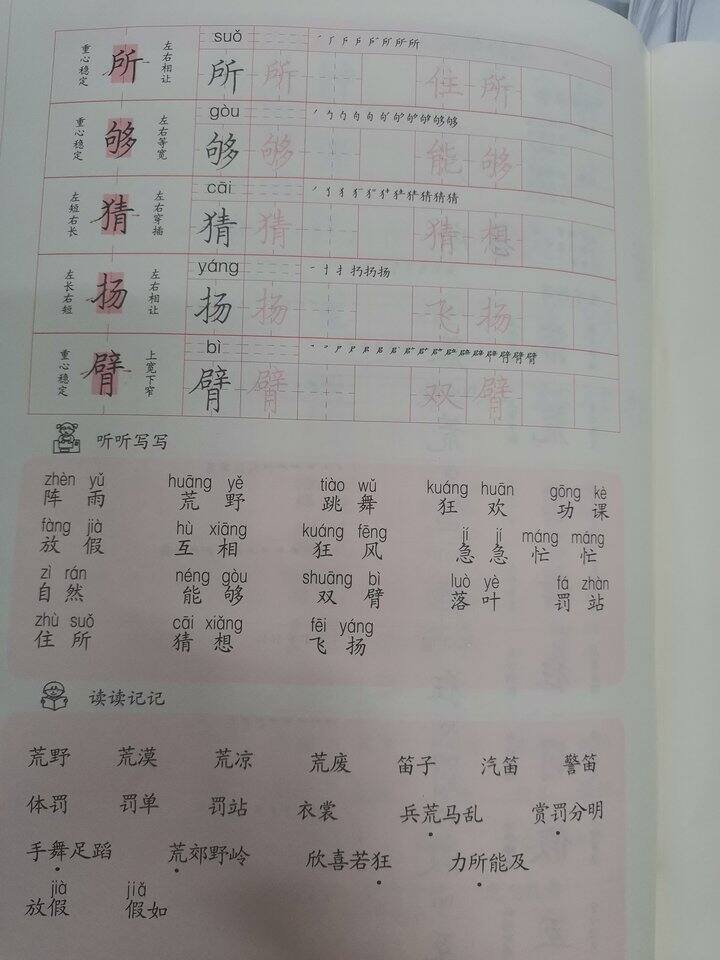 重心稳定 所 左右相让 suǒ
所 所 住 所
重心稳定 够 左右等宽 gòu
够 够 能 够
左短右长 猜 左右穿插 cāi
猜 猜 猜 想
左长右短 扬 左右相让 yáng
扬 扬 飞 扬
重心稳定 臂 上宽下窄 bì
臂 臂 双 臂
听听写写
zhèn yǔ huāng yě tiào wǔ kuáng huān gōng kè
阵雨 荒野 跳舞 狂欢 功课
fàng jià hù xiāng kuáng fēng jí jí máng máng
放假 互相 狂风 急急忙忙
zì rán néng gòu shuāng bì luò yè fá zhàn
自然 能够 双臂 落叶 罚站
zhù suǒ cāi xiǎng fēi yáng
住所 猜想 飞扬
读读记记
荒野 荒漠 荒凉 荒废 笛子 汽笛 警笛
体罚 罚单 罚站 衣裳 兵荒马乱 赏罚分明
手舞足蹈 荒郊野岭 欣喜若狂 力所能及
jià jiǎ
放假 假如